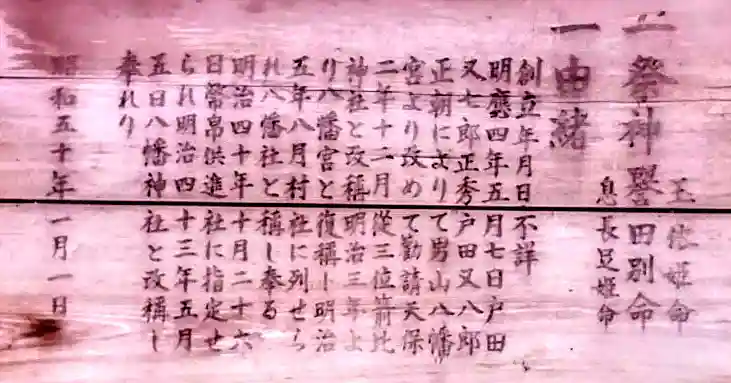 一祭神 玉依姫命
誉田別命
息長足姫命
一由緒
創立年月日不詳
明應四年五月七日戸田
又七郎正秀戸田又八郎
正朝によりて男山八幡
宮より改めて勧請天保
二年十二月従三位箭比
神社と改称明治三年よ
り八幡宮と復称し明治
五年八月村社に列せら
れ八幡社と称し奉る
明治四十年十月二十六
日幣帛供進社に指定せ
られ明治四十三年五月
五日八幡神社と改称し
奉れり
昭和五十年一月一日